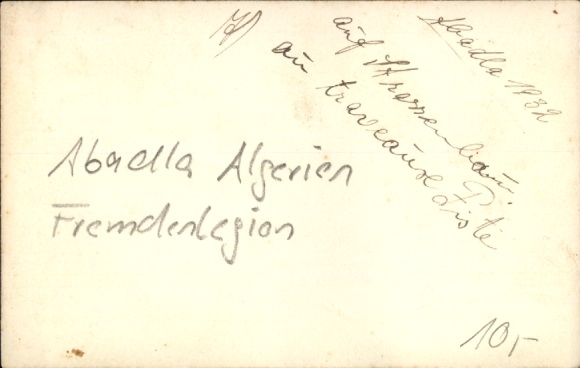 7)
Abadla 1932
auf Strassenbau.
au traveaux Piste
Abadla Algerien
Fremdenlegion
10,-